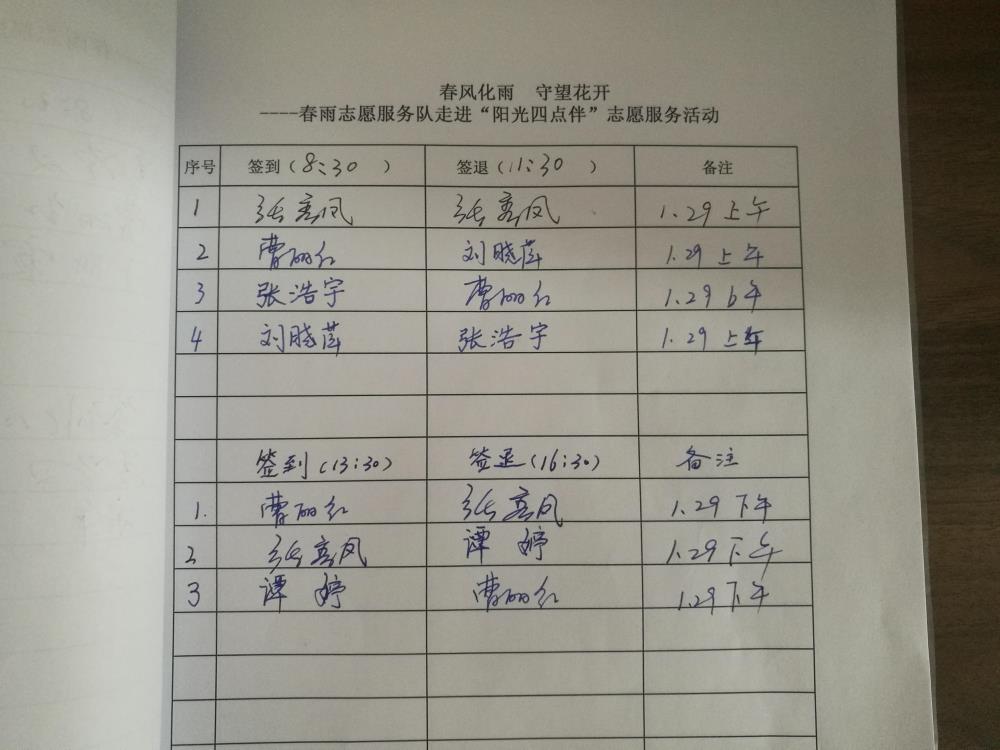 春风化雨 守望花开
----春雨志愿服务队走进“阳光四点伴”志愿服务活动
序号 签到(8:30) 签退(11:30) 备注
1 张高凤 张高凤 1.29上午
2 曹丽红 刘晓莲 1.29上午
3 张浩宇 曹丽红 1.29上午
4 刘晓莲 张浩宇 1.29上午
签到(13:30) 签退(16:30) 备注
1. 曹丽红 张高凤 1.29下午
2 张高凤 谭婷 1.29下午
3 谭婷 曹丽红 1.29下午